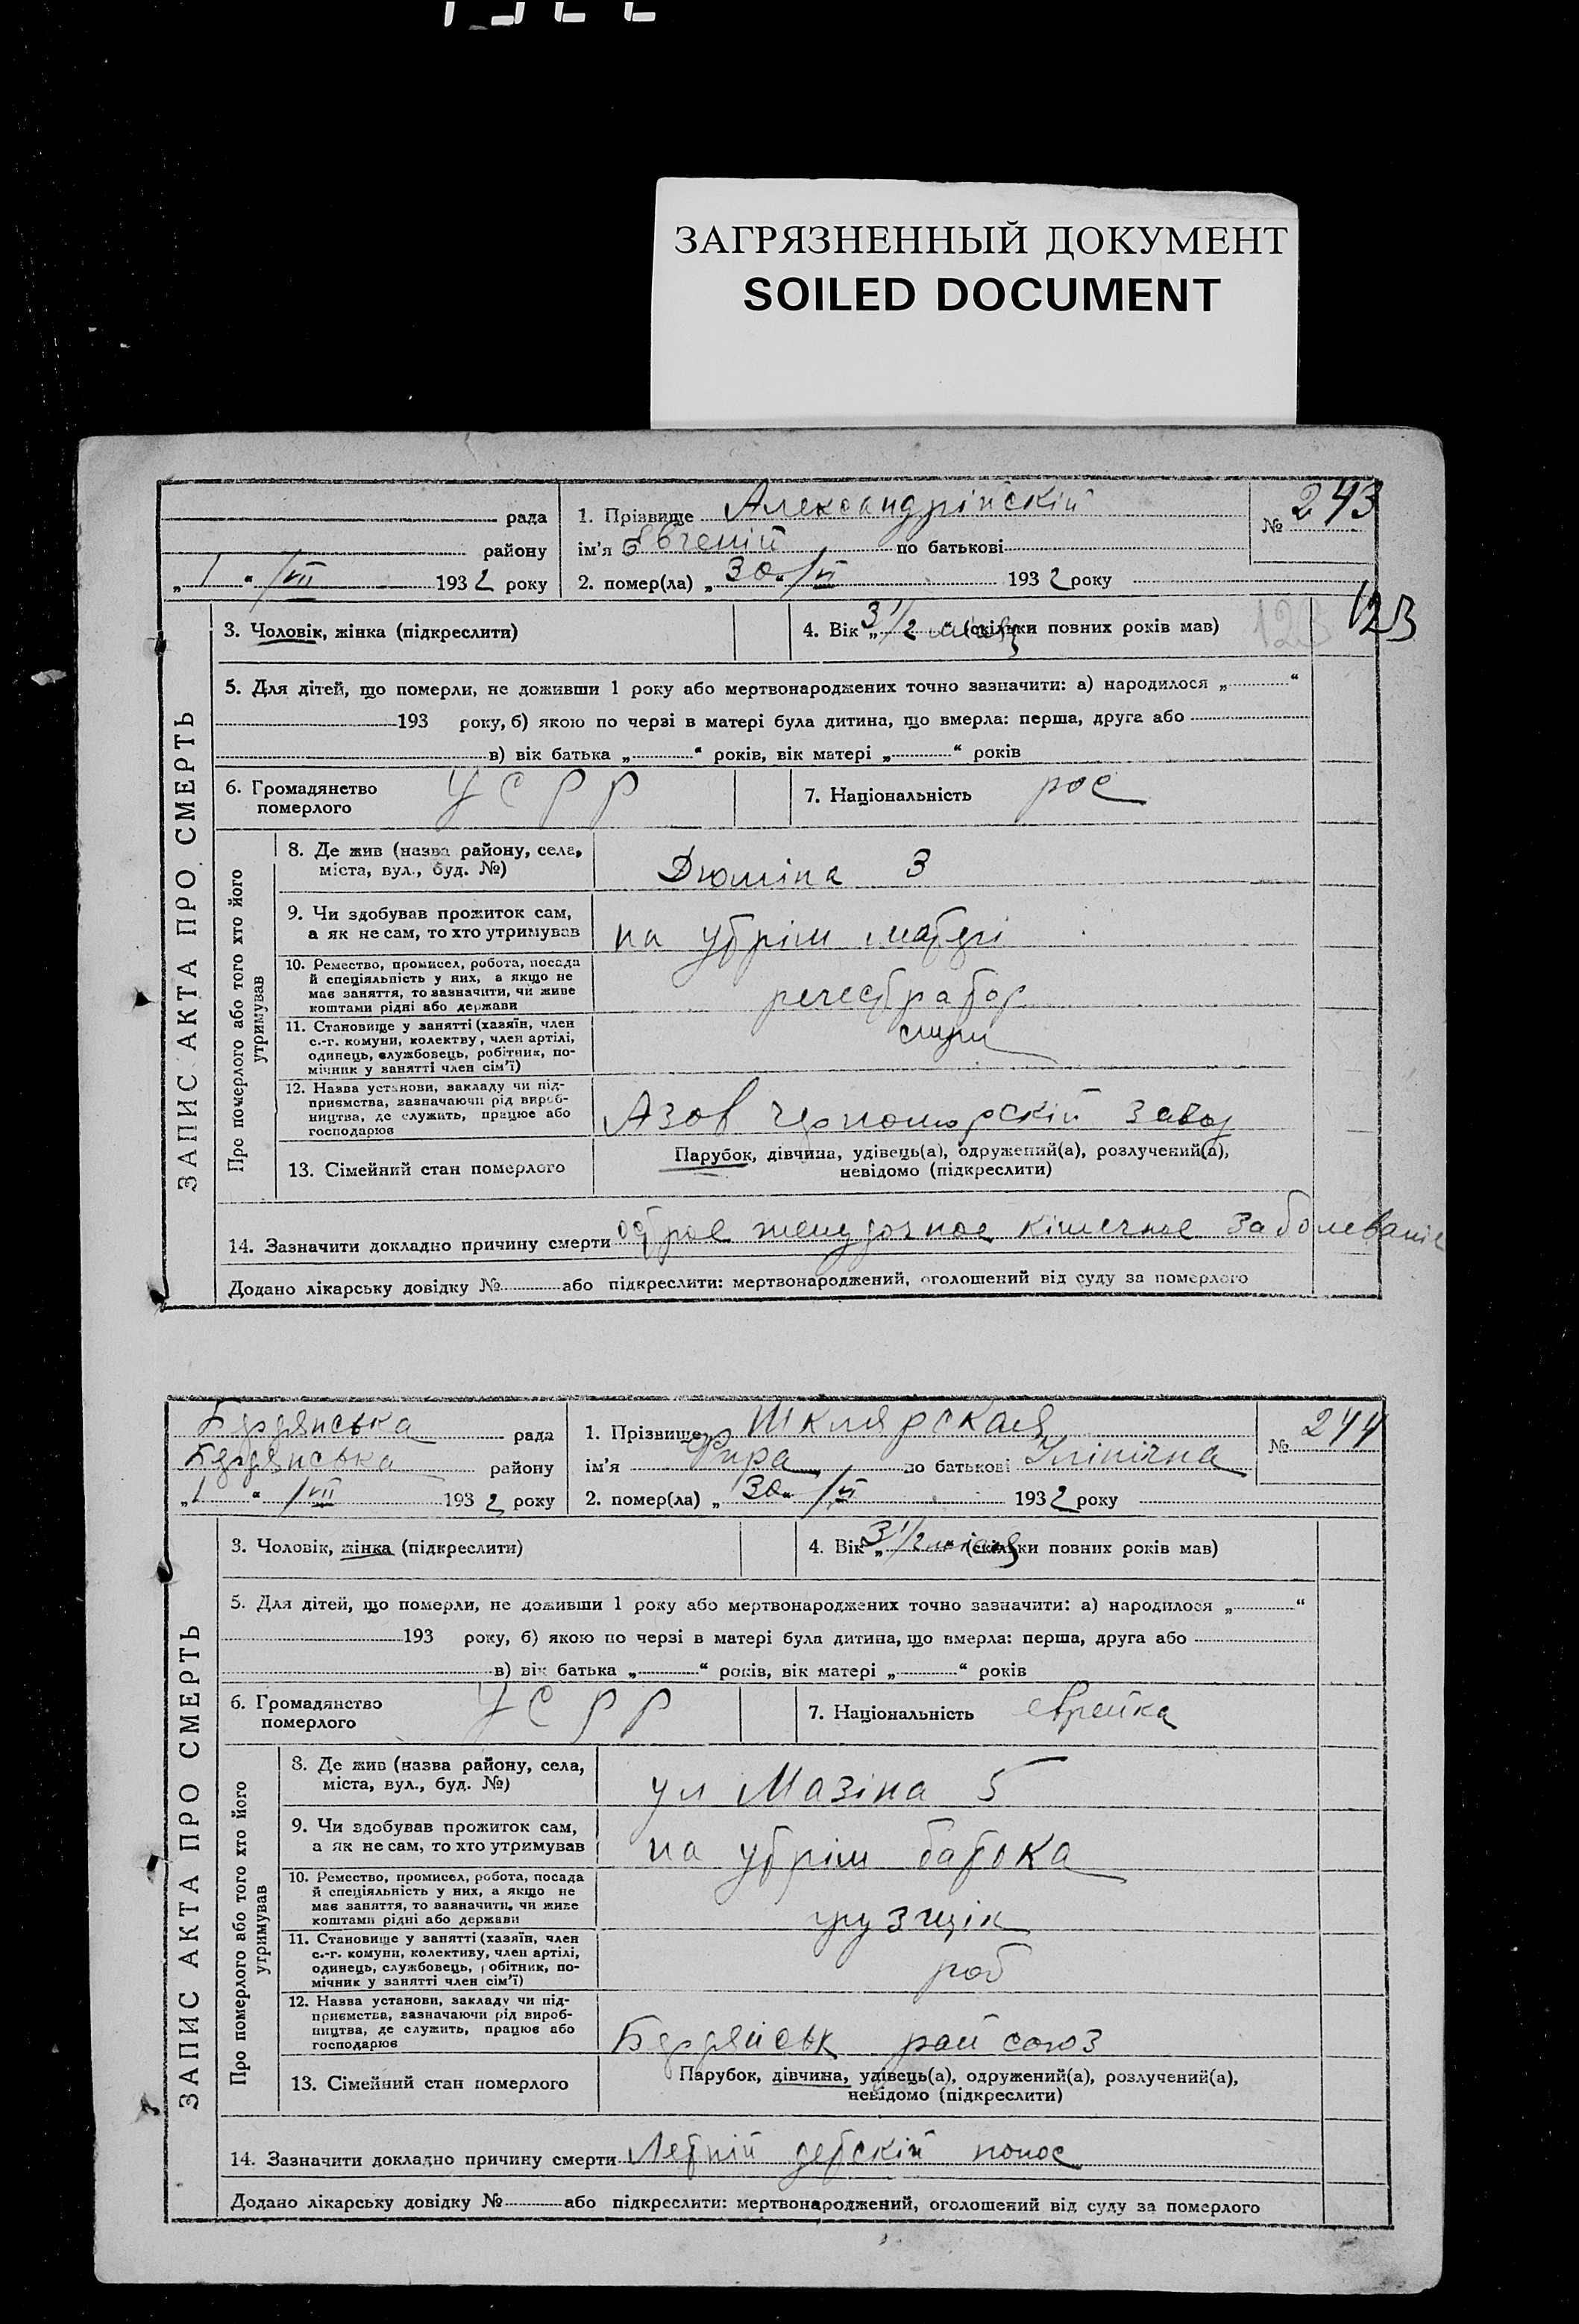 ЗАГРЯЗНЕННЫЙ ДОКУМЕНТ
SOILED DOCUMENT
рада
району
„ 1 “ /VII 1932 року
1. Прізвище Александрійскій
ім'я Євгеній по батькові
2. помер(ла) „ 30 “ /VI 1932 року
№ 243
123
123
ЗАПИС АКТА ПРО СМЕРТЬ
3. Чоловік, жінка (підкреслити)
4. Вік „ 3 1/2 “ (скільки повних років мав)
5. Для дітей, що померли, не доживши 1 року або мертвонароджених точно зазначити: а) народилося „ “
193 року, б) якою по черзі в матері була дитина, що вмерла: перша, друга або
в) вік батька „ “ років, вік матері „ “ років
6. Громадянство
померлого
УСРР
7. Національність рос
Про померлого або того хто його
утримував
8. Де жив (назва району, села,
міста, вул., буд. №)
Дюміна 3
9. Чи здобував прожиток сам,
а як не сам, то хто утримував
на утрім матері
10. Ремество, промисел, робота, посада
й спеціяльність у них, а якщо не
має заняття, то зазначити, чи живе
коштами рідні або держави
11. Становище у занятті (хазяїн, член
с.-г. комуни, колектву, член артілі,
одинець, службовець, робітник, по-
мічник у занятті член сім'ї)
12. Назва установи, закладу чи під-
приємства, зазначаючи рід вироб-
ництва, де служить, працює або
господарює
Азов Чорноморскій завод
13. Сімейний стан померлого
Парубок, дівчина, удівець(а), одружений(а), розлучений(а),
невідомо (підкреслити)
14. Зазначити докладно причину смерти острое желудочное кішечное заболеваніе
Додано лікарську довідку № або підкреслити: мертвонароджений, оголошений від суду за померлого
Бердянська рада
Бердянська району
„ 1 “ /VII 1932 року
1. Прізвище Шклярская
ім'я Фира по батькові
2. помер(ла) „ 30 “ /VI 1932 року
№ 244
ЗАПИС АКТА ПРО СМЕРТЬ
3. Чоловік, жінка (підкреслити)
4. Вік „ 3 1/2 міся “ (скільки повних років мав)
5. Для дітей, що померли, не доживши 1 року або мертвонароджених точно зазначити: а) народилося „ “
193 року, б) якою по черзі в матері була дитина, що вмерла: перша, друга або
в) вік батька „ “ років, вік матері „ “ років
6. Громадянство
померлого
УСРР
7. Національність єврейка
Про померлого або того хто його
утримував
8. Де жив (назва району, села,
міста, вул., буд. №)
ул Мазіна 5
9. Чи здобував прожиток сам,
а як не сам, то хто утримував
на утрім батька
10. Ремество, промисел, робота, посада
й спеціяльність у них, а якщо не
має заняття, то зазначити, чи живе
коштами рідні або держави
грузчік
11. Становище у занятті (хазяїн, член
с.-г. комуни, колективу, член артілі,
одинець, службовець, робітник, по-
мічник у занятті член сім'ї)
роб
12. Назва установи, закладу чи під-
приємства, зазначаючи рід вироб-
ництва, де служить, працює або
господарює
Бердянськ райсоюз
13. Сімейний стан померлого
Парубок, дівчина, удівець(а), одружений(а), розлучений(а),
невідомо (підкреслити)
14. Зазначити докладно причину смерти Летній детскій понос
Додано лікарську довідку № або підкреслити: мертвонароджений, оголошений від суду за померлого